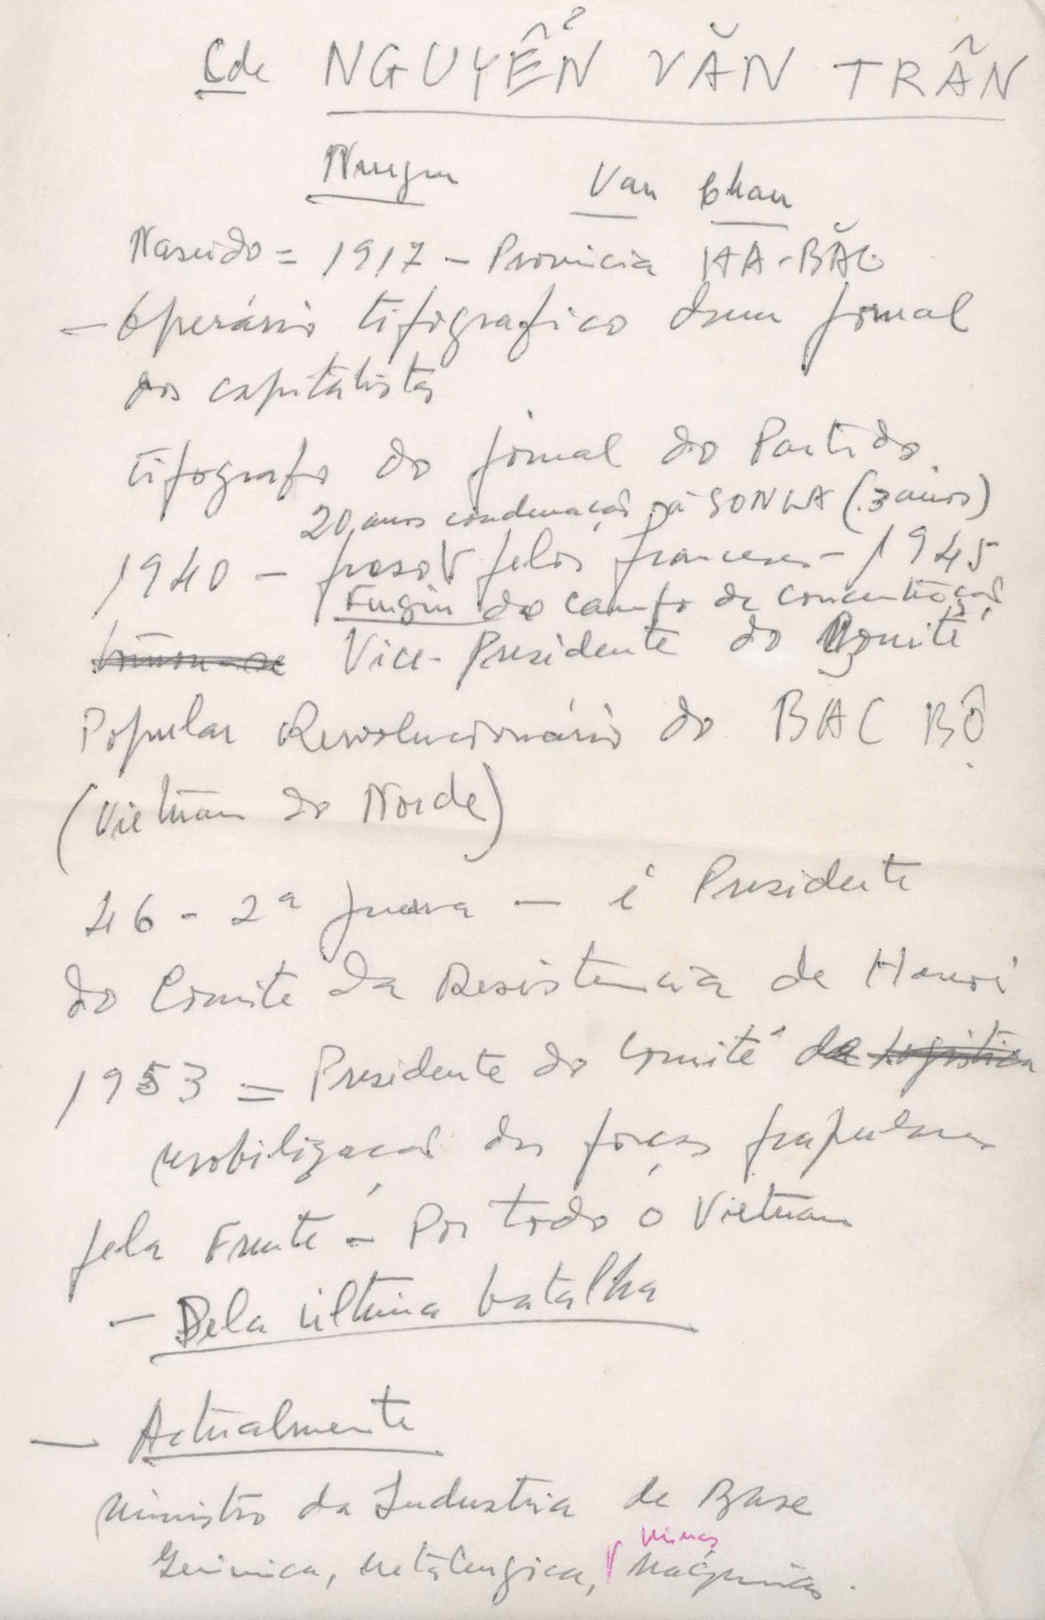 Cde NGUYỄN VĂN TRÂN
Van Chan
Nascido = 1917 - Provincia HA-BĂC
- Operário tipografico dum jornal
dos capitalistas
tipografo do jornal do Partido
20 anos condenação pa SONLA (3 anos)
1940 - preso V pelos franceses - 1945
Fugiu do campo de concentração
Vice-Presidente do Comité
Popular Revolucionário do BAC BÔ
(Vietnam do Norde)
46 - 2ª guerra - é Presidente
do Comite da Resistencia de Hanoi
1953 = Presidente do Comité de logistica
mobilização das forças populares
pela Frente - Por todo o Vietnam
- Dela última batalha
- Actualmente
Ministro da Industria de Base
Quimica, metalurgica, V minas Máquinas.